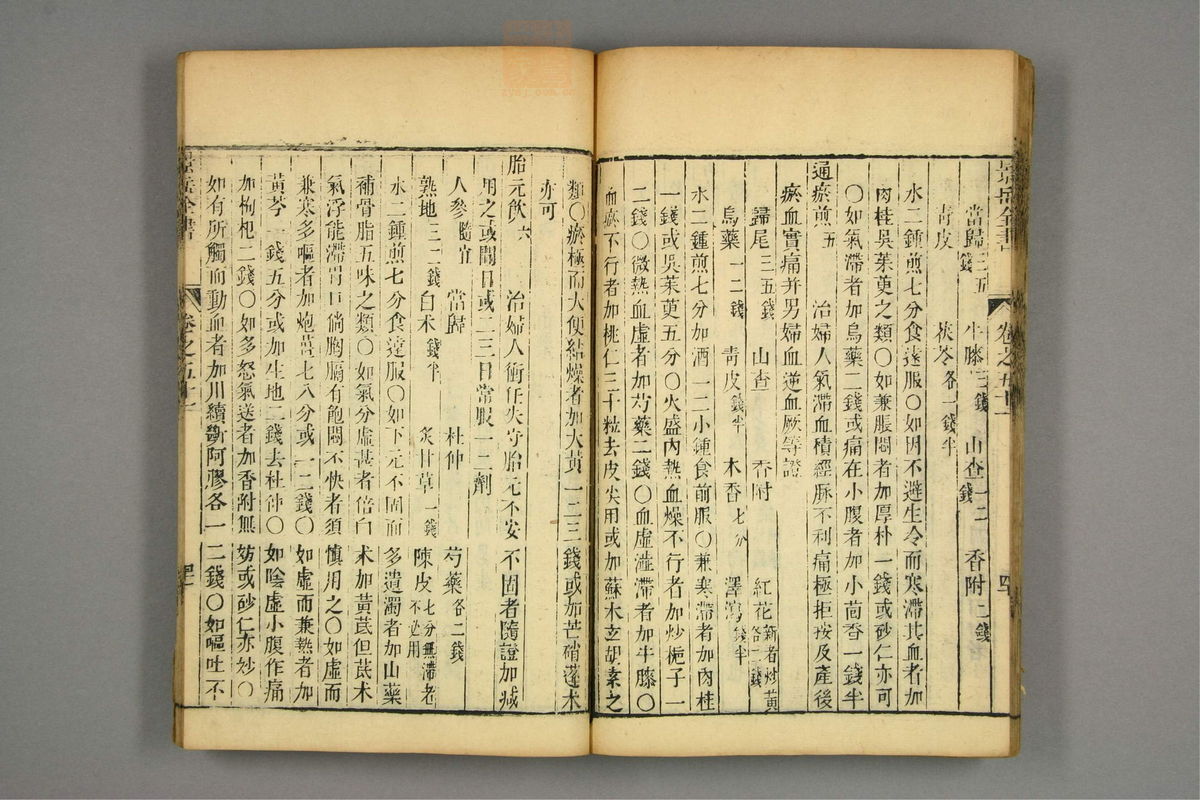 當歸三五錢 牛膝二錢 山查一二錢 香附二錢
青皮 茯苓各一錢半
水二鍾煎七分食遠服○如因不避生冷而寒滯其血者加
肉桂吳茱萸之類○如兼脹悶者加厚朴一錢或砂仁亦可
○如氣滯者加烏藥二錢或痛在小腹者加小茴香一錢半
通瘀煎五 治婦人氣滯血積經脉不利痛極拒按及產後
瘀血實痛并男婦血逆血厥等證
歸尾三五錢 山查 香附 紅花新者炒黃各二錢
烏藥一二錢 青皮錢半 木香七分 澤瀉錢半
水二鍾煎七分加酒一二小鍾食前服○兼寒滯者加肉桂
一錢或吳茱萸五分○火盛內熱血燥不行者加炒梔子一
二錢○微熱血虛者加芍藥二錢○血虛澁滯者加牛膝○
血瘀不行者加桃仁三十粒去皮尖用或加蘇木玄胡索之
景岳全書 卷之五十一
類○瘀極而大便結燥者加大黃一二三錢或加芒硝蓬术
亦可
胎元飲六 治婦人衝任失守胎元不安不固者隨證加減
用之或間日或二三日常服一二劑
人參隨宜 當歸 杜仲 芍藥各二錢
熟地二三錢 白术錢半 炙甘草一錢 陳皮七分無滯者不必用
水二鍾煎七分食遠服○如下元不固而多遺濁者加山藥
補骨脂五味之類○如氣分虛甚者倍白术加黃芪但芪术
氣浮能滯胃口倘胸膈有飽悶不快者須慎用之○如虛而
兼寒多嘔者加炮薑七八分或一二錢○如虛而兼熱者加
黃芩一錢五分或加生地二錢去杜仲○如陰虛小腹作痛
加枸杞二錢○如多怒氣逆者加香附無妨或砂仁亦妙○
如有所觸而動血者加川續斷阿膠各一二錢○如嘔吐不
景岳全書 卷之五十一